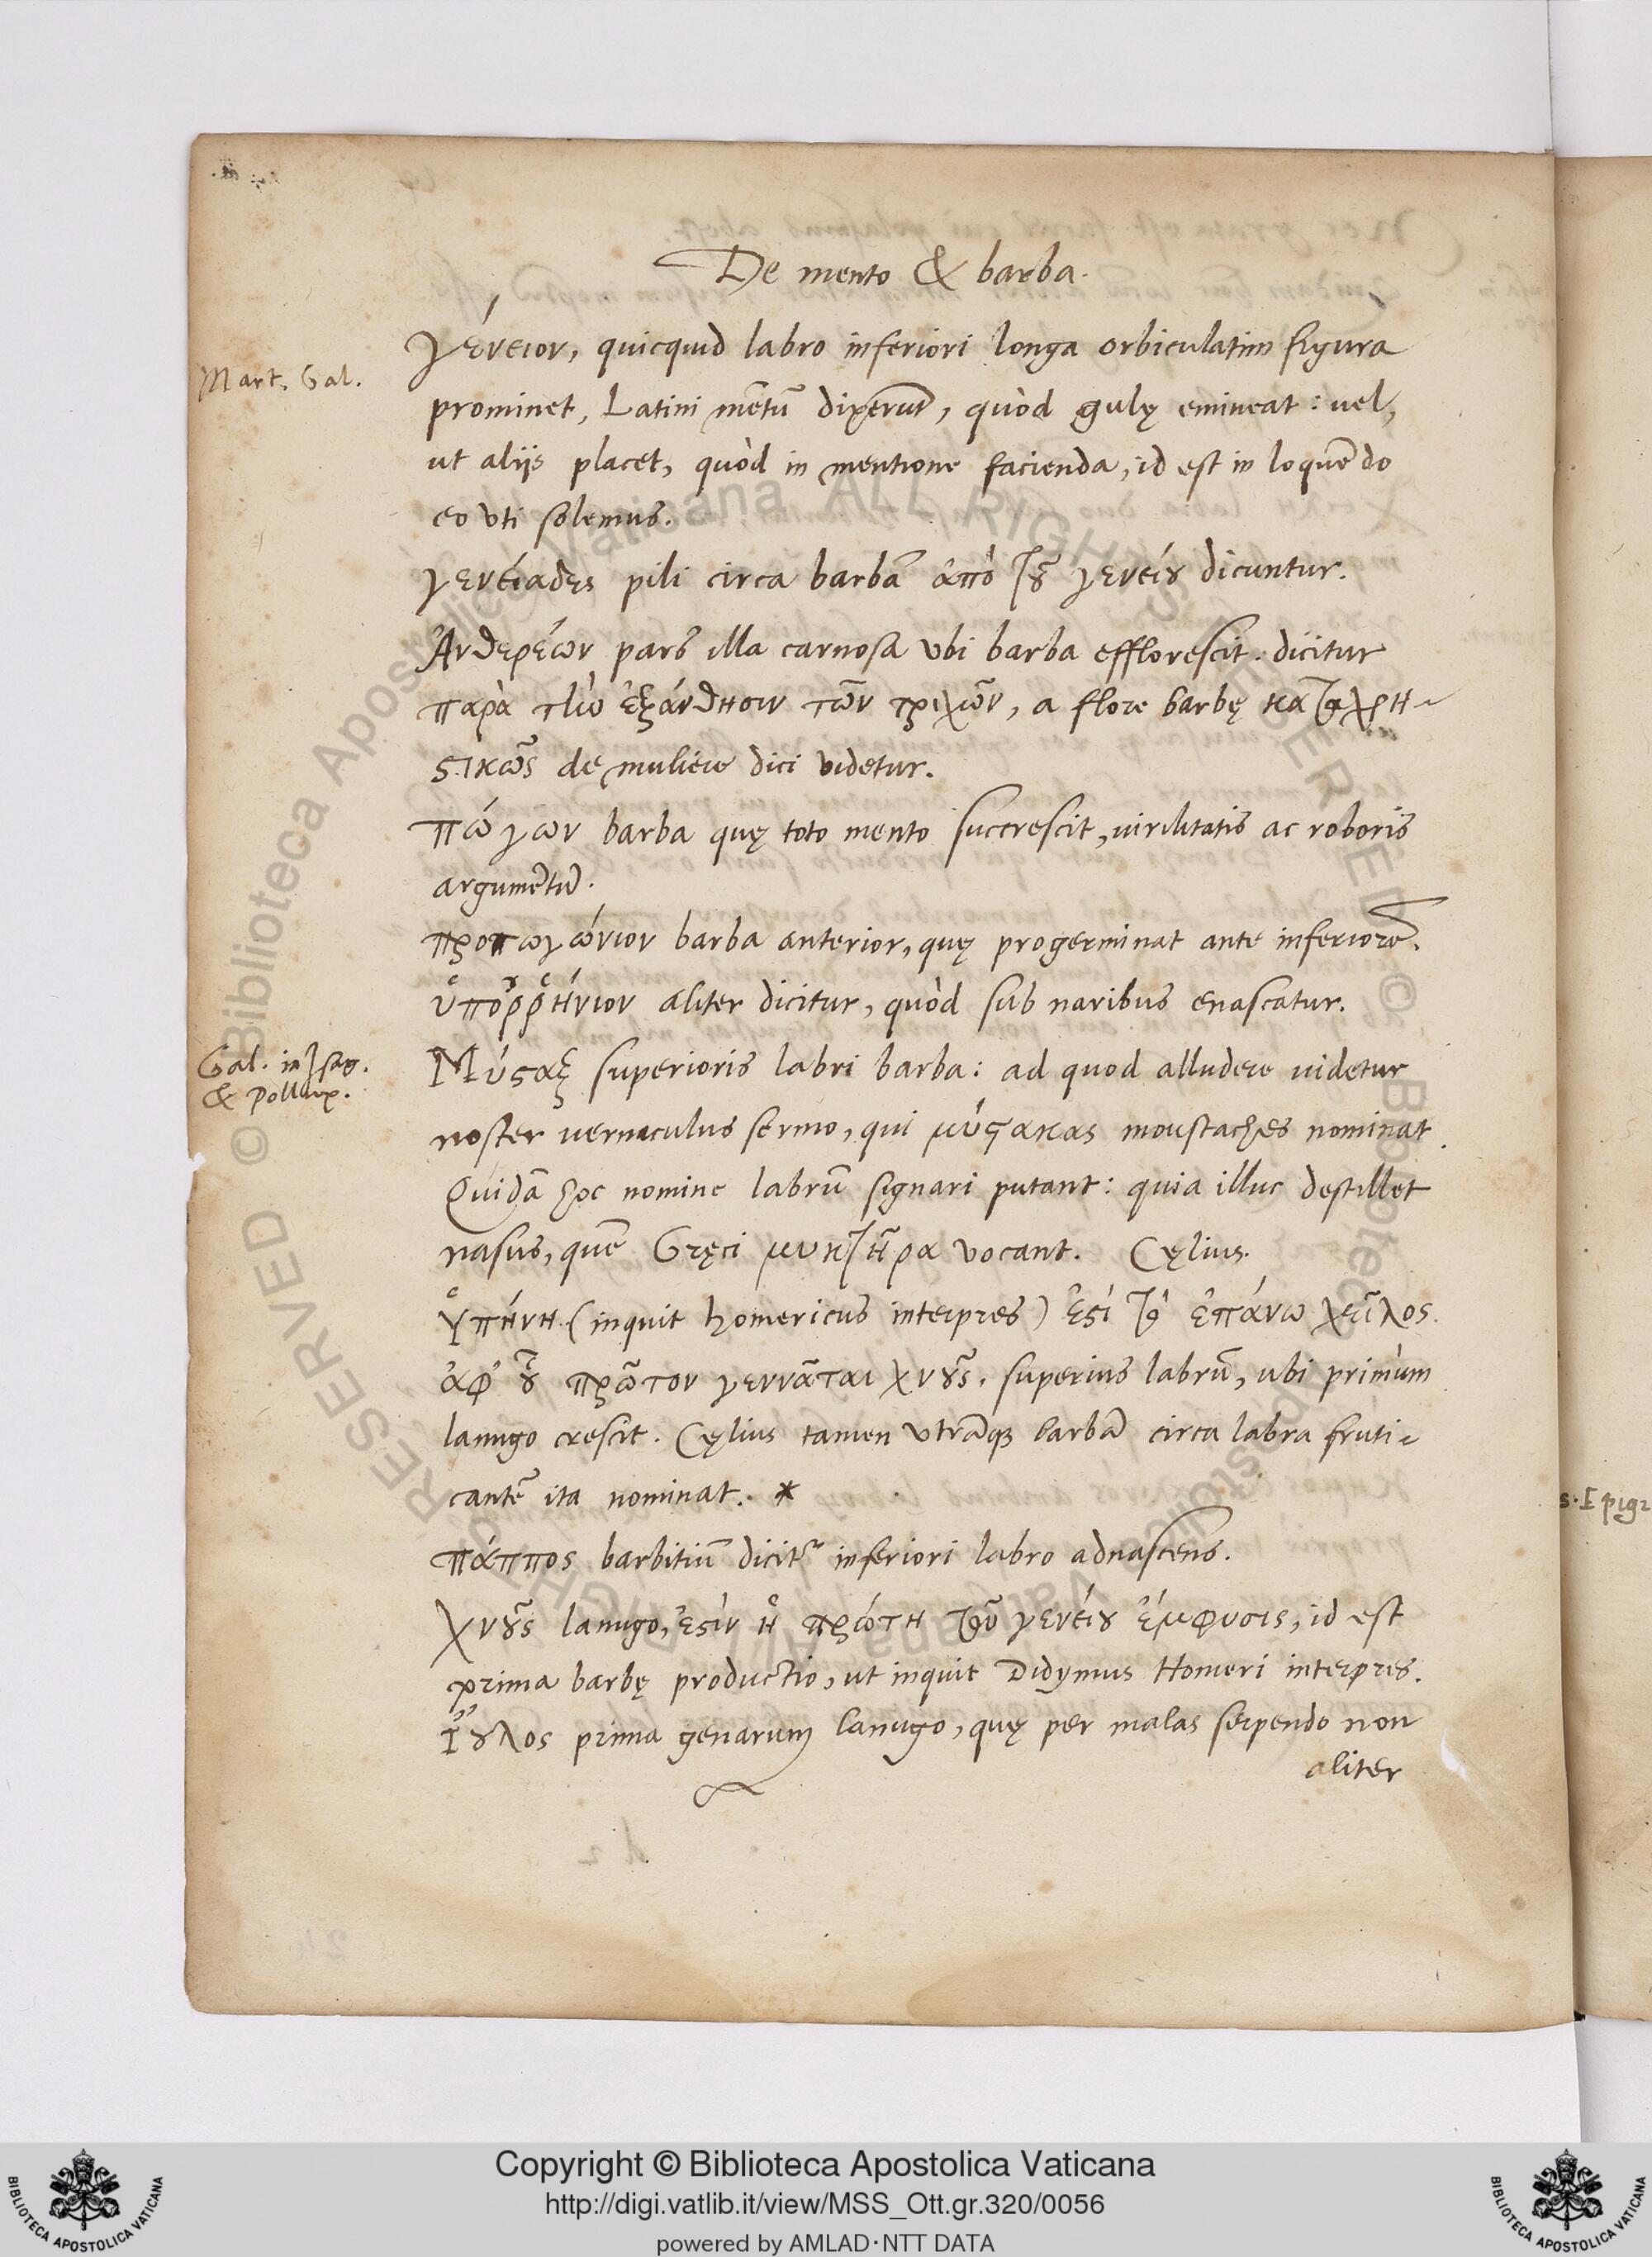 De mento & barba.
γένειον, quicquid labro inferiori longa orbiculatim figura
Mart. Gal.
prominet, Latini mētū dixerūt, quòd gulę emineat: vel,
ut aliis placet, quòd in mentione facienda, id est in loquēdo
eo vti solemus.
γενείαδες pili circa barbā ἀπὸ τȣ͂ γενείȣ dicuntur.
Ἀνθερέων pars illa carnosa vbi barba efflorescit. dicitur
παρὰ τὴν ἐξάνθησιν τῶν τριχῶν, a flore barbę καταχρη-
ϛικῶς de muliere dici videtur.
πώγων barba quę toto mento succrescit, virilitatis ac roboris
argumētū.
προπωγώνιον barba anterior, quę progerminat ante inferiorē.
ὑποῤῥήνιον aliter dicitur, quòd sub naribus enascatur.
Gal. in Isag.
& Pollux.
Μύϛαξ superioris labri barba: ad quod alludere videtur
noster vernaculus sermo, qui μύϛακας moustaches nominat.
Quidā hoc nomine labrū signari putant: quia illuc destillet
nasus, quē Gręci μυκτῆρα vocant. Cęlius.
ὑπήνη (inquit homericus interpres) ἐϛὶ τὸ ἐπάνω χεῖλος.
ἀφ' ȣ͂ πρῶτον γεννᾶται χνȣ͂ς. superius labrū, ubi primùm
lanugo crescit. Cęlius tamen vtrāqȝ barbā circa labra fruti-
cantē ita nominat. *
πάππος barbitiū dicitr inferiori labro adnascens.
χνȣ͂ς lanugo, ἐϛὶν ἡ πρώτη τοῦ γενείȣ ἔμφυσις, id est
prima barbę productio, ut inquit Didymus Homeri interpres.
Ἴȣλος prima genarum lanugo, quę per malas serpendo non
aliter
s. Epigr
Copyright © Biblioteca Apostolica Vaticana
http://digi.vatlib.it/view/MSS_Ott.gr.320/0056
powered by AMLAD·NTT DATA
BIBLIOTECA APOSTOLICA VATICANA
BIBLIOTECA APOSTOLICA VATICANA